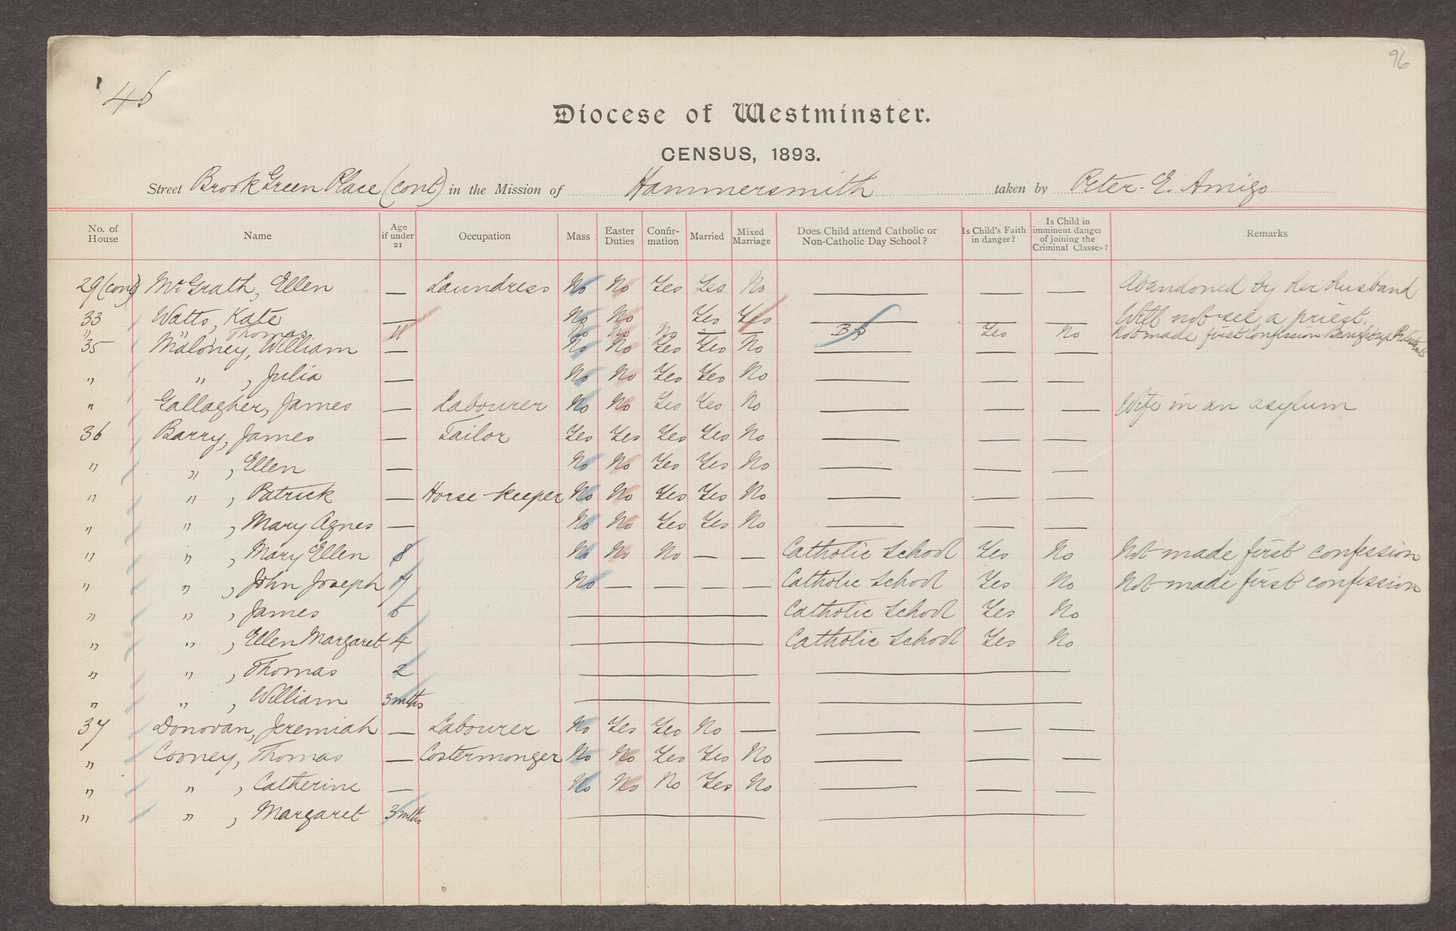 96
46
Diocese of Westminster.
CENSUS, 1893.
Street Brook Green Place (cont) in the Mission of Hammersmith taken by Peter. E. Amigo
No. of House Name Age if under 21 Occupation Mass Easter Duties Confir-mation Married Mixed Marriage Does Child attend Catholic or Non-Catholic Day School? Is Child's Faith in danger? Is Child in imminent danger of joining the Criminal Classes? Remarks
29 (cont) McGrath, Ellen — Laundress No No Yes Yes No — — — Abandoned by her husband
33 Watts, Kate — No No Yes Yes — — — Will not see a priest.
" " , Thomas 11 No No No — — B S Yes No Not made first confession
35 Maloney, William — No No Yes Yes No — — —
" " , Julia — No No Yes Yes No — — —
" Gallagher, James — Labourer No No Yes Yes No — — — Wife in an asylum
36 Barry, James — Tailor Yes Yes Yes Yes No — — —
" " , Ellen — No No Yes Yes No — — —
" " , Patrick — Horse-keeper No No Yes Yes No — — —
" " , Mary Agnes — No No Yes Yes No — — —
" " , Mary Ellen 8 No No No — — Catholic School Yes No Not made first confession
" " , John Joseph 7 No — — — — Catholic School Yes No Not made first confession
" " , James 5 — Catholic School Yes No
" " , Ellen Margaret 4 — Catholic School Yes No
" " , Thomas 2 — —
" " , William 3 mths — —
37 Donovan, Jeremiah — Labourer No Yes Yes No — — — —
" Cooney, Thomas — Costermonger No No Yes Yes No — — —
" " , Catherine — No No No Yes No — — —
" " , Margaret 3 mths — —